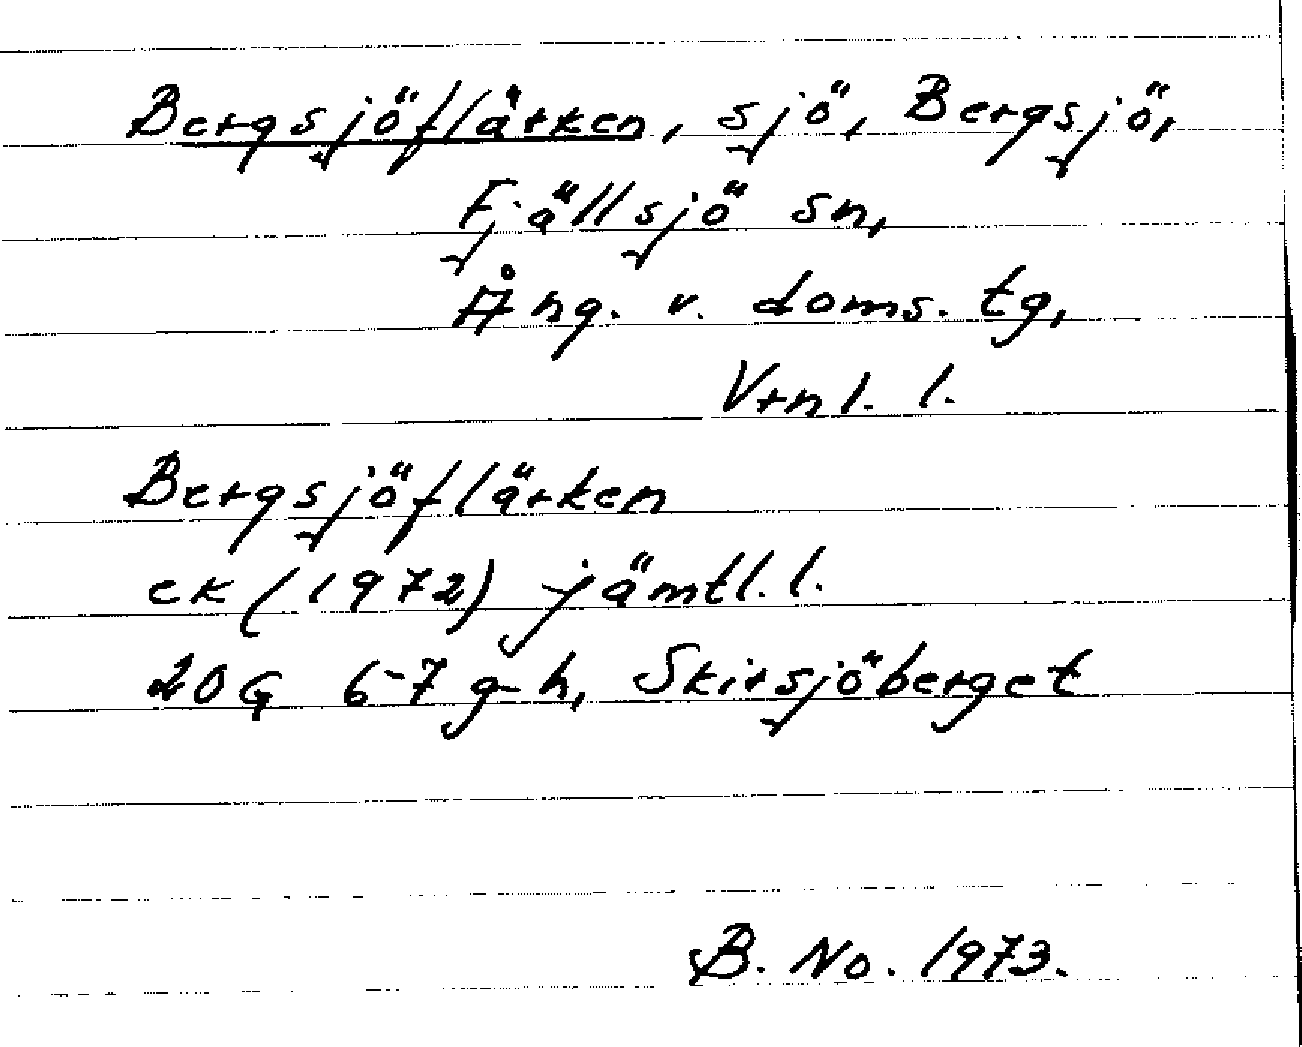 Bergsjöflärken, sjö, Bergsjö,
Fjällsjö sn,
Ång. v. doms. tg,
Vrnl. l.
Bergsjöflärken
ek (1972) jämtl. l.
20G 6-7 g-h, Skirsjöberget
B. No. 1973.